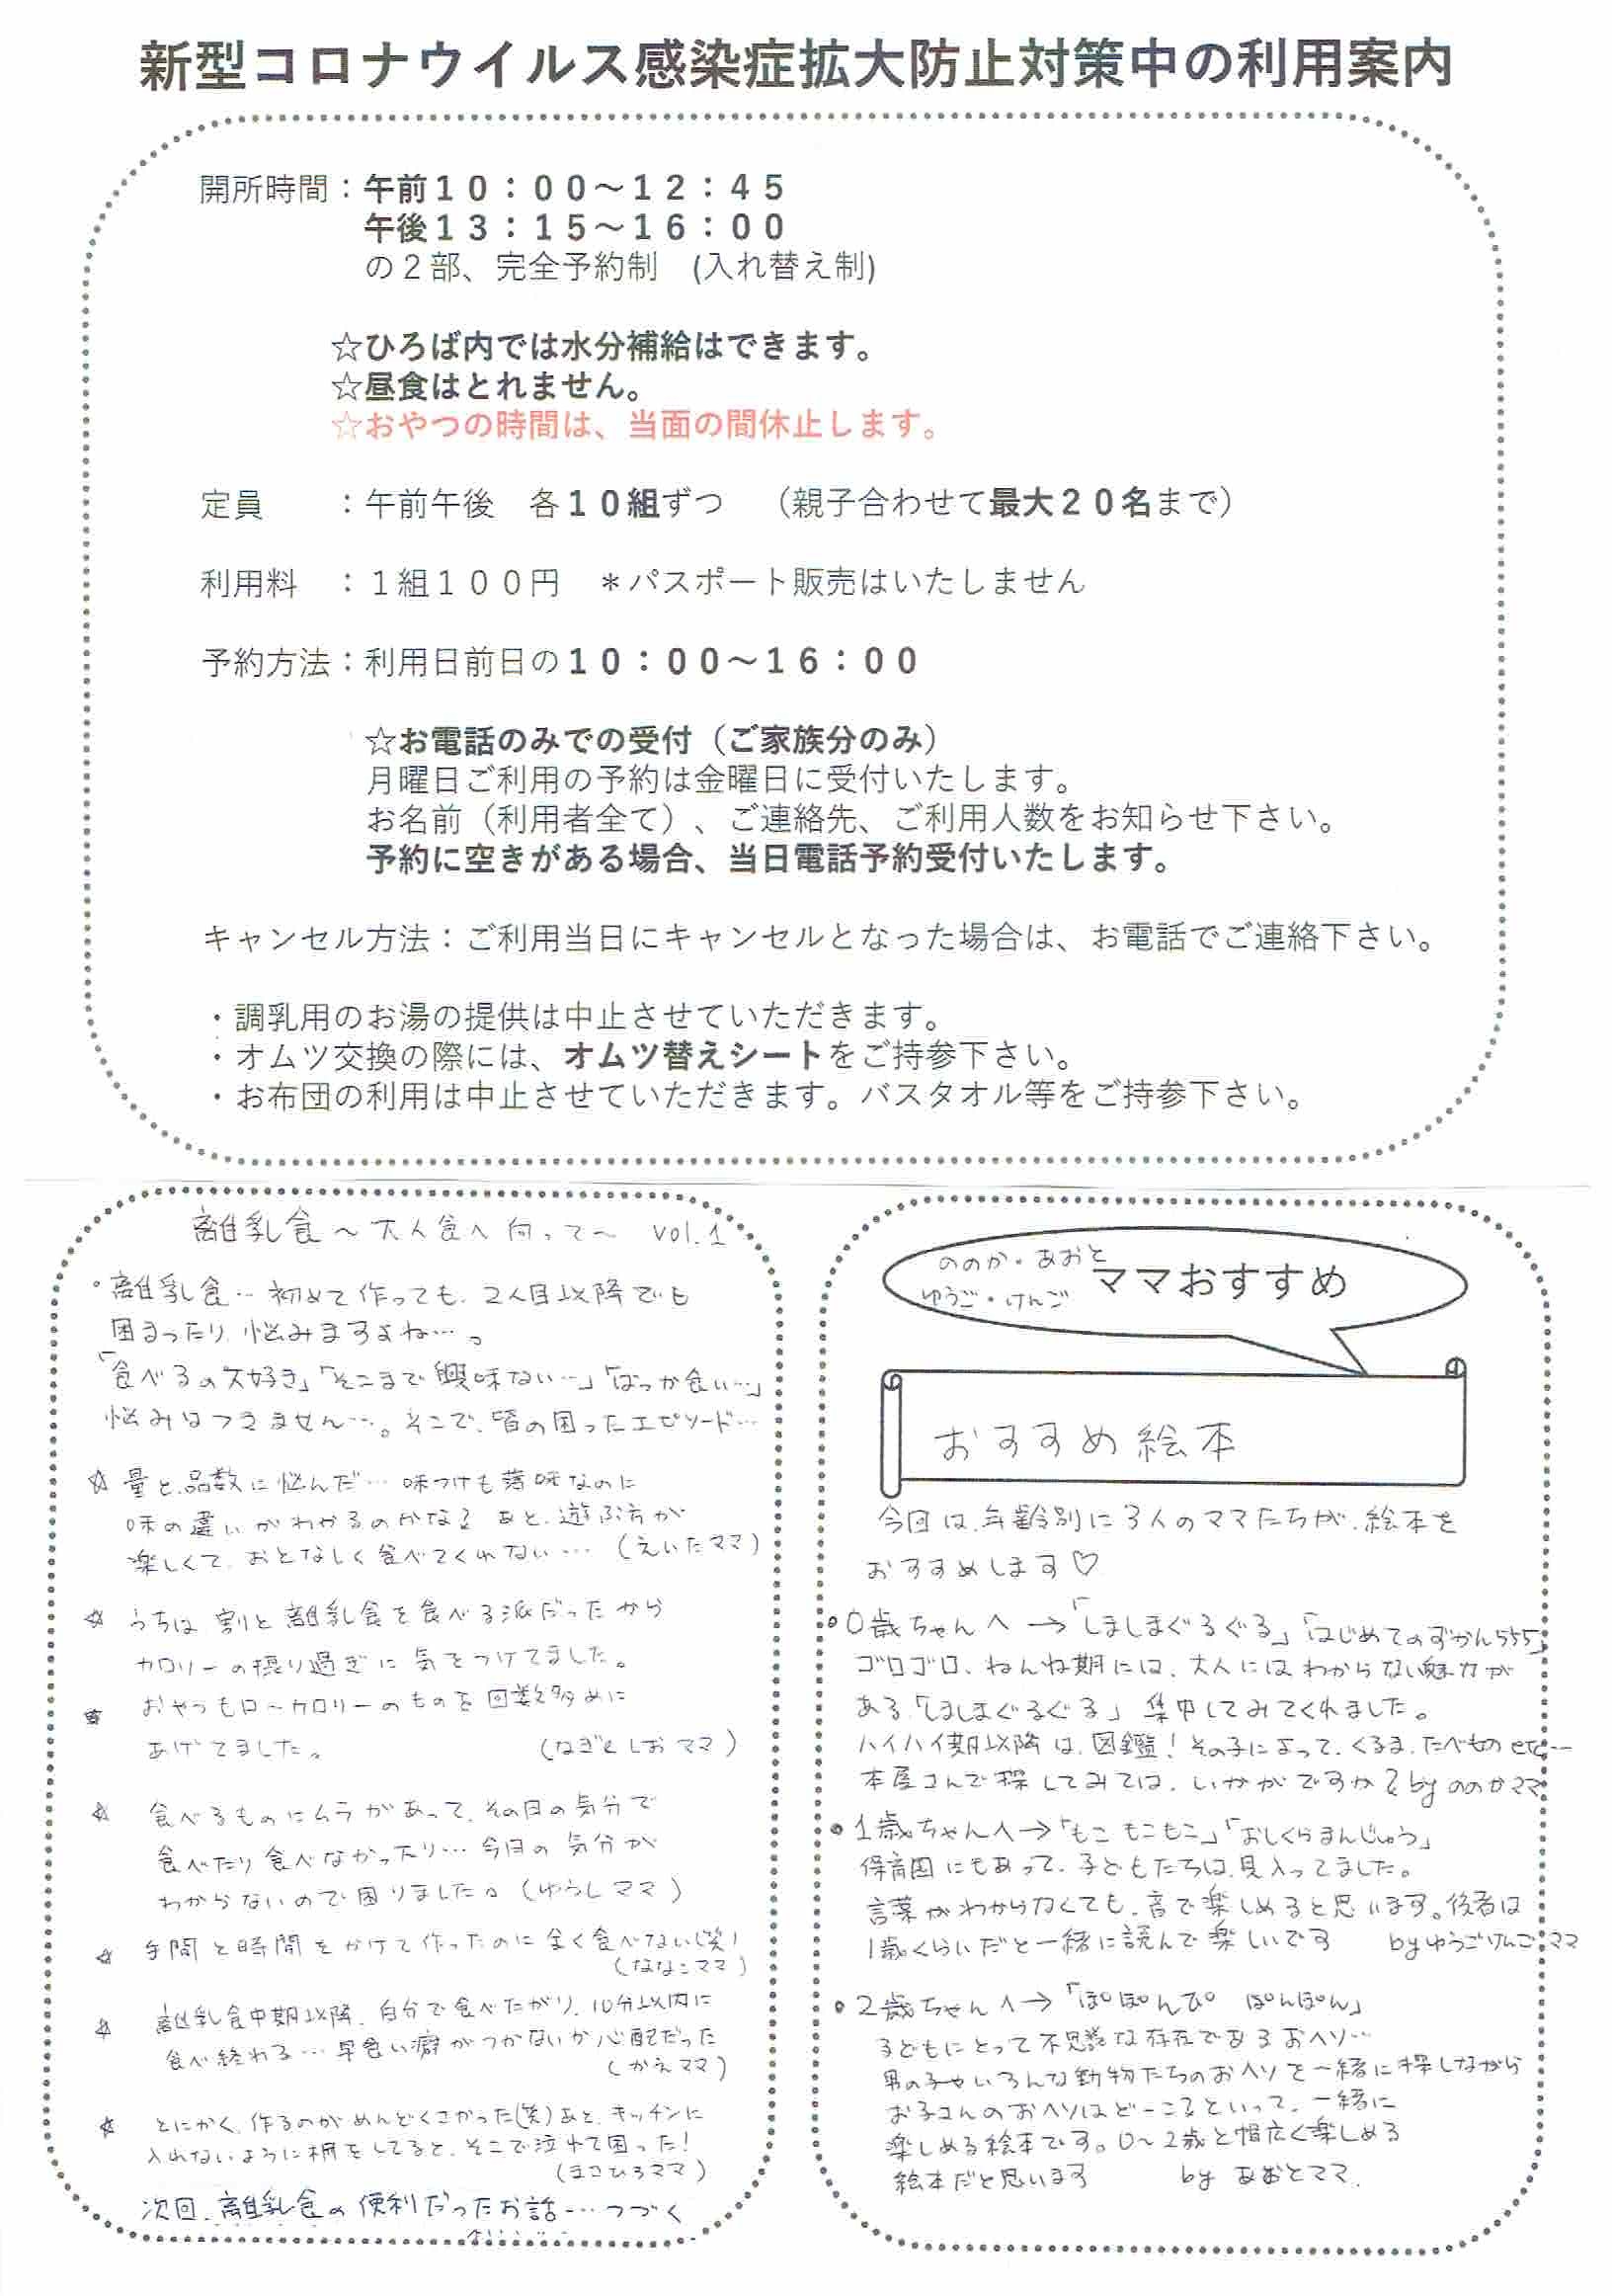 新型コロナウイルス感染症拡大防止対策中の利用案内
開所時間：午前１０：００～１２：４５
午後１３：１５～１６：００
の２部、完全予約制　(入れ替え制)
☆ひろば内では水分補給はできます。
☆昼食はとれません。
☆おやつの時間は、当面の間休止します。
定員　　：午前午後　各１０組ずつ　（親子合わせて最大２０名まで）
利用料　：１組１００円　＊パスポート販売はいたしません
予約方法：利用日前日の１０：００～１６：００
☆お電話のみでの受付（ご家族分のみ）
月曜日ご利用の予約は金曜日に受付いたします。
お名前（利用者全て）、ご連絡先、ご利用人数をお知らせ下さい。
予約に空きがある場合、当日電話予約受付いたします。
キャンセル方法：ご利用当日にキャンセルとなった場合は、お電話でご連絡下さい。
・調乳用のお湯の提供は中止させていただきます。
・オムツ交換の際には、オムツ替えシートをご持参下さい。
・お布団の利用は中止させていただきます。バスタオル等をご持参下さい。
離乳食～大人食へ向って～　vol.1
・離乳食…初めて作っても、2人目以降でも
困まったり、悩みますよね…。
「食べるの大好き」「そこまで興味ない…」「ばっか食い…」
悩みはつきません…。そこで、皆の困ったエピソード…
☆ 量と、品数に悩んだ… 味つけも薄味なのに
味の違いがわかるのかな？ あと、遊ぶ方が
楽しくて、おとなしく食べてくれない…（えいたママ）
☆ うちは割と離乳食を食べる派だったから
カロリーの摂り過ぎに気をつけてました。
☆ おやつもローカロリーのものを回数多めに
あげてました。（なぎとしおママ）
☆ 食べるものにムラがあって、その日の気分で
食べたり食べなかったり… 今日の気分が
わからないので困りました。（ゆうしママ）
☆ 手間と時間をかけて作ったのに全く食べない(笑)
（ななこママ）
☆ 離乳食中期以降、自分で食べたがり、10分以内に
食べ終わる… 早食い癖がつかないか心配だった
（かえママ）
☆ とにかく、作るのがめんどくさかった(笑)あと、キッチンに
入れないように柵をしてると、そこで泣かれて困った！
（まさひろママ）
次回、離乳食の便利だったお話…つづく
ののか・あおと
ゆうご・けんご
ママおすすめ
おすすめ絵本
今回は、年齢別に3人のママたちが、絵本を
おすすめします♡
・0歳ちゃんへ→「しましまぐるぐる」「はじめてのずかん555」
ゴロゴロ、ねんね期には、大人にはわからない魅力が
ある「しましまぐるぐる」 集中してみてくれました。
ハイハイ期以降は、図鑑！その子によって、くるま、たべもの etc…
本屋さんで探してみては、いかがですか？ by ののかママ
・1歳ちゃんへ→「もこ もこもこ」「おしくらまんじゅう」
保育園にもあって、子どもたちは、見入ってました。
言葉がわからなくても、音で楽しめると思います。後者は
1歳くらいだと一緒に読んで楽しいです　by ゆうごけんごママ
・2歳ちゃんへ→「ぽんぽんぴ ぽんぽん」
子どもにとって不思議な存在であるおヘソ…
男の子やいろんな動物たちのおヘソを一緒に探しながら
お子さんのおヘソはど～こ？といって、一緒に
楽しめる絵本です。0～2歳と幅広く楽しめる
絵本だと思います　by あおとママ.